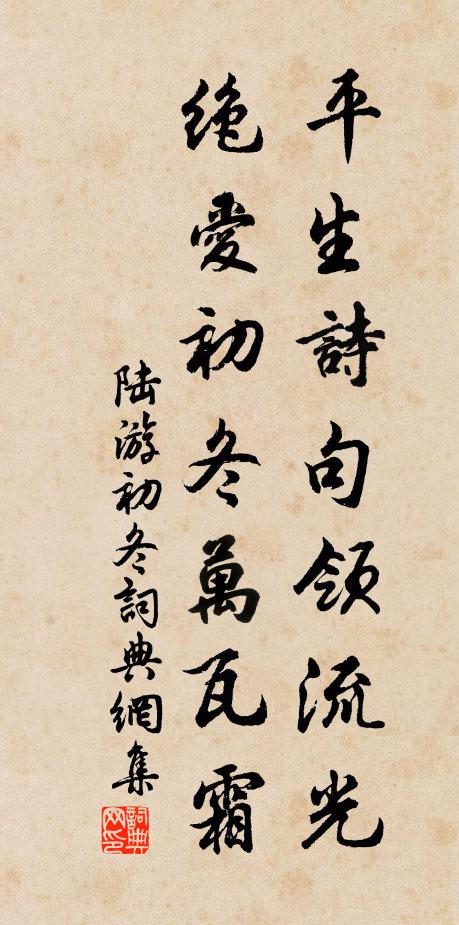 平生詩句領流光
絶愛初冬萬瓦霜
陆游初冬詞典網集
詞典网印